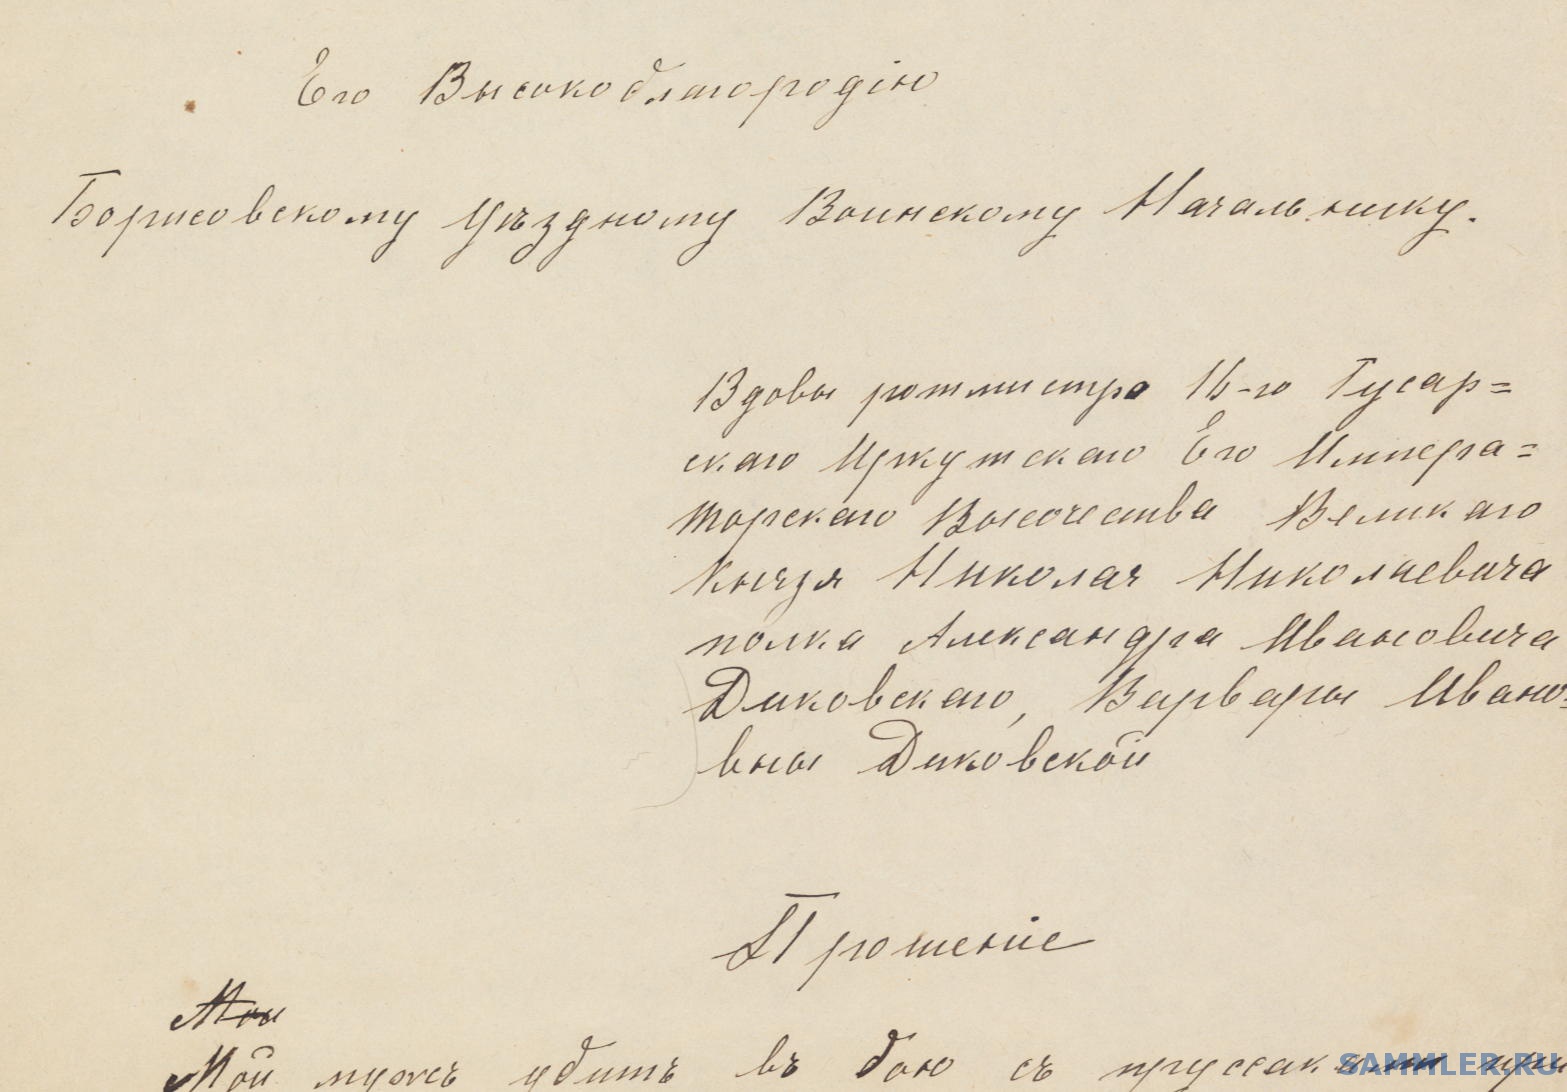 Его Высокоблагородію
Борисовскому Уѣздному Воинскому Начальнику.
Вдовы ротмистра 16-го Гусар=
скаго Иркутскаго Его Импера=
торскаго Высочества Великаго
Князя Николая Николаевича
полка Александра Ивановича
Диковскаго, Варвары Ивано=
вны Диковской
Прошеніе
Мой
Мой мужъ убитъ въ бою съ пруссаками при
SAMMLER.RU